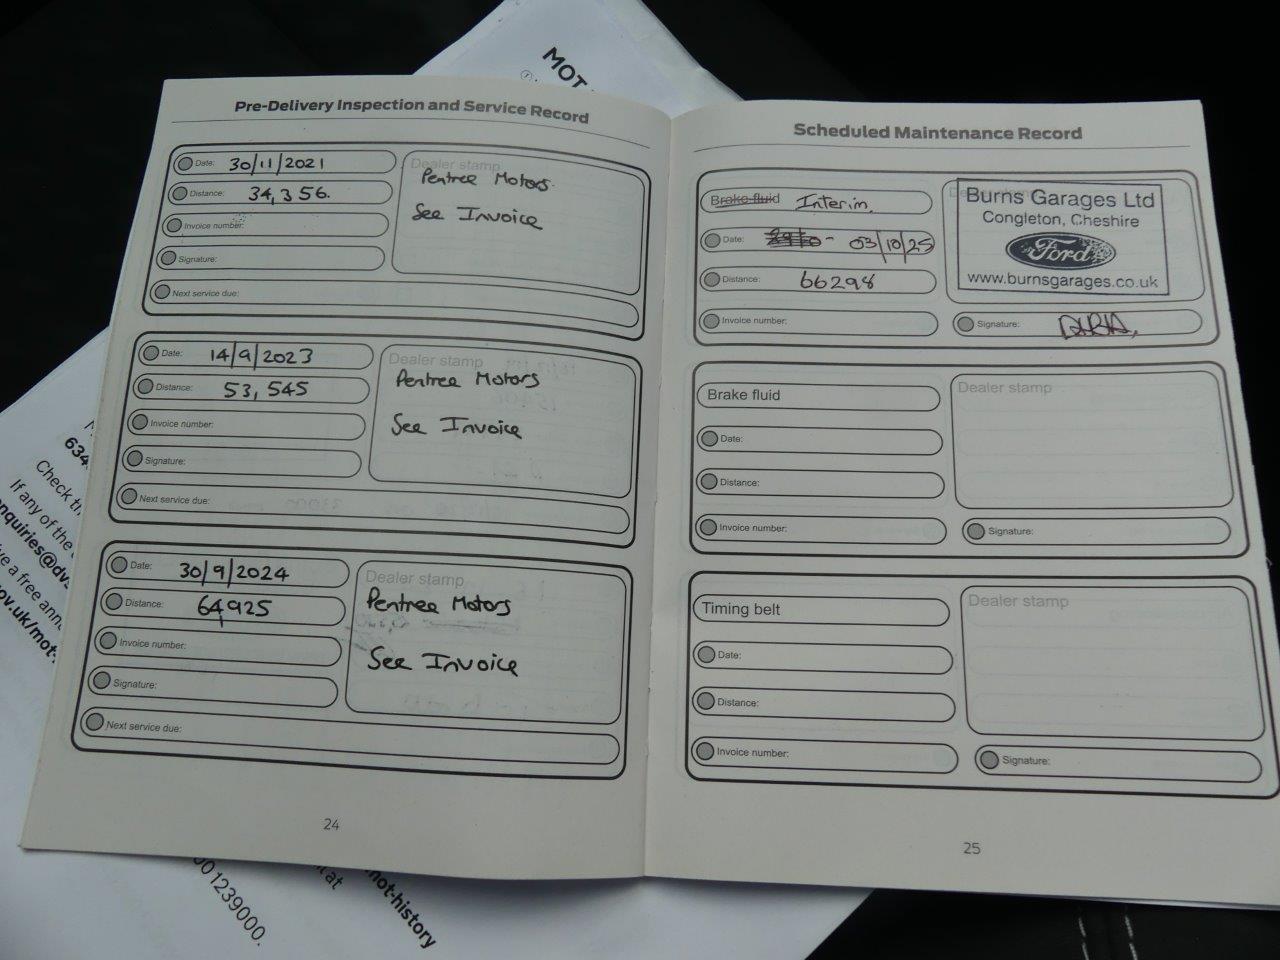 MOT
Pre-Delivery Inspection and Service Record
Date: 30/11/2021
Distance: 34,356.
Invoice number:
Signature:
Next service due:
Dealer stamp
Pentree Motors
See Invoice
Date: 14/9/2023
Distance: 53,545
Invoice number:
Signature:
Next service due:
Dealer stamp
Pentree Motors
See Invoice
Date: 30/9/2024
Distance: 64,925
Invoice number:
Signature:
Next service due:
Dealer stamp
Pentree Motors
See Invoice
24
Scheduled Maintenance Record
Brake fluid Interim.
Date: 03/10/25
Distance: 66298
Invoice number:
Burns Garages Ltd
Congleton, Cheshire
Ford
www.burnsgarages.co.uk
Signature:
Brake fluid
Date:
Distance:
Invoice number:
Dealer stamp
Signature:
Timing belt
Date:
Distance:
Invoice number:
Dealer stamp
Signature:
25
634
Check th
If any of the
enquiries@dv
ve a free ann
ov.uk/mot-
not-history
at
001239000.